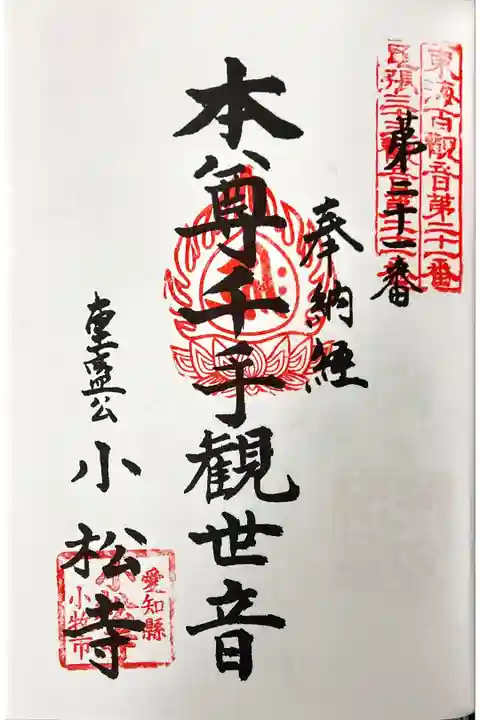 東海百觀音第二十一番
尾張三十三觀音第二十一番
苐二十一番
奉納経
本尊千手観世音
重盛公
小松寺
愛知縣
小牧市